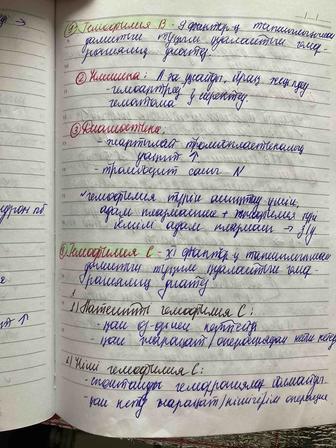 ① Гемофилия В - 9 фактор ң тапшылығынан
дамитын тұқым қуалайтын гемор-
рагиялық диатез
② Клиника: А ға ұқсайды, бірақ жеңілдеу
- гемоартроз
гематома } сиректеу.
③ Диагностика.
- жартылай тромбопластиналық
уақыт ↑
- тромбоцит саны N
гемофилия түрін анықтау үшін,
адам плазмасына +
адам плазмасы →
Гемофилия С - XI фактор ң тапшылығынан
дамитын тұқым қуалайтын гемор-
рагиялық диатез
1) Латентті гемофилия С:
- қан өз-өзінен кетпейді
- қан жарақат/операциядан кейін кетеді
2) Кіші гемофилия С:
- спонтанды геморрагиялар болмайды
- қан кету жарақат/кішігірім операция